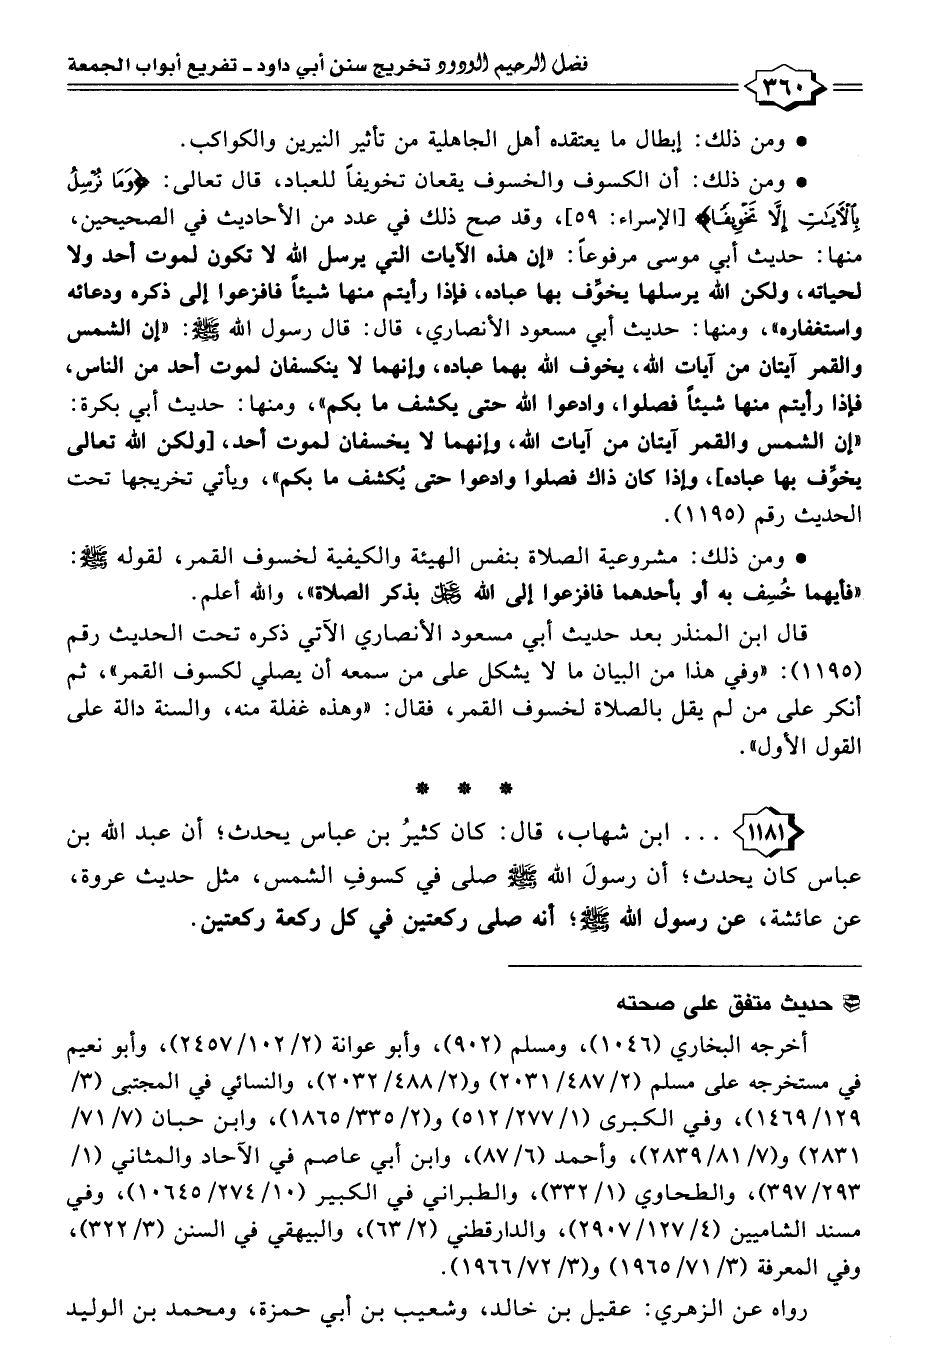 فضل الرحيم الودود تخريج سنن أبي داود ـ تفريع أبواب الجمعة
٣٦٠
● ومن ذلك: إبطال ما يعتقده أهل الجاهلية من تأثير النيرين والكواكب.
● ومن ذلك: أن الكسوف والخسوف يقعان تخويفاً للعباد، قال تعالى: ﴿وَمَا نُرْسِلُ
بِٱلْأَيَـٰتِ إِلَّا تَخْوِيفًا﴾ [الإسراء: ٥٩]، وقد صح ذلك في عدد من الأحاديث في الصحيحين،
منها: حديث أبي موسى مرفوعاً: «إن هذه الآيات التي يرسل الله لا تكون لموت أحد ولا
لحياته، ولكن الله يرسلها يخوِّف بها عباده، فإذا رأيتم منها شيئاً فافزعوا إلى ذكره ودعائه
واستغفاره»، ومنها: حديث أبي مسعود الأنصاري، قال: قال رسول الله ﷺ: «إن الشمس
والقمر آيتان من آيات الله، يخوف الله بهما عباده، وإنهما لا ينكسفان لموت أحد من الناس،
فإذا رأيتم منها شيئاً فصلوا، وادعوا الله حتى يكشف ما بكم»، ومنها: حديث أبي بكرة:
«إن الشمس والقمر آيتان من آيات الله، وإنهما لا يخسفان لموت أحد، [ولكن الله تعالى
يخوِّف بها عباده]، وإذا كان ذاك فصلوا وادعوا حتى يُكشف ما بكم»، ويأتي تخريجها تحت
الحديث رقم (١١٩٥).
● ومن ذلك: مشروعية الصلاة بنفس الهيئة والكيفية لخسوف القمر، لقوله ﷺ:
«فأيهما خُسِف به أو بأحدهما فافزعوا إلى الله عز وجل بذكر الصلاة»، والله أعلم.
قال ابن المنذر بعد حديث أبي مسعود الأنصاري الآتي ذكره تحت الحديث رقم
(١١٩٥): «وفي هذا من البيان ما لا يشكل على من سمعه أن يصلي لكسوف القمر»، ثم
أنكر على من لم يقل بالصلاة لخسوف القمر، فقال: «وهذه غفلة منه، والسنة دالة على
القول الأول».
* * *
١١٨١ ... ابن شهاب، قال: كان كثيرُ بن عباس يحدث؛ أن عبد الله بن
عباس كان يحدث؛ أن رسولَ الله ﷺ صلى في كسوفِ الشمس، مثل حديث عروة،
عن عائشة، عن رسول الله ﷺ؛ أنه صلى ركعتين في كل ركعة ركعتين.
حديث متفق على صحته
أخرجه البخاري (١٠٤٦)، ومسلم (٩٠٢)، وأبو عوانة (٢/ ١٠٢/ ٢٤٥٧)، وأبو نعيم
في مستخرجه على مسلم (٢/ ٤٨٧/ ٢٠٣١) و(٢/ ٤٨٨/ ٢٠٣٢)، والنسائي في المجتبى (٣/
١٢٩/ ١٤٦٩)، وفي الكبرى (١/ ٢٧٧/ ٥١٢) و(٢/ ٣٣٥/ ١٨٦٥)، وابن حبان (٧/ ٧١/
٢٨٣١) و(٧/ ٨١/ ٢٨٣٩)، وأحمد (٦/ ٨٧)، وابن أبي عاصم في الآحاد والمثاني (١/
٢٩٣/ ٣٩٧)، والطحاوي (١/ ٣٣٢)، والطبراني في الكبير (١٠/ ٢٧٤/ ١٠٦٤٥)، وفي
مسند الشاميين (٤/ ١٢٧/ ٢٩٠٧)، والدارقطني (٢/ ٦٣)، والبيهقي في السنن (٣/ ٣٢٢)،
وفي المعرفة (٣/ ٧١/ ١٩٦٥) و(٣/ ٧٢/ ١٩٦٦).
رواه عن الزهري: عقيل بن خالد، وشعيب بن أبي حمزة، ومحمد بن الوليد